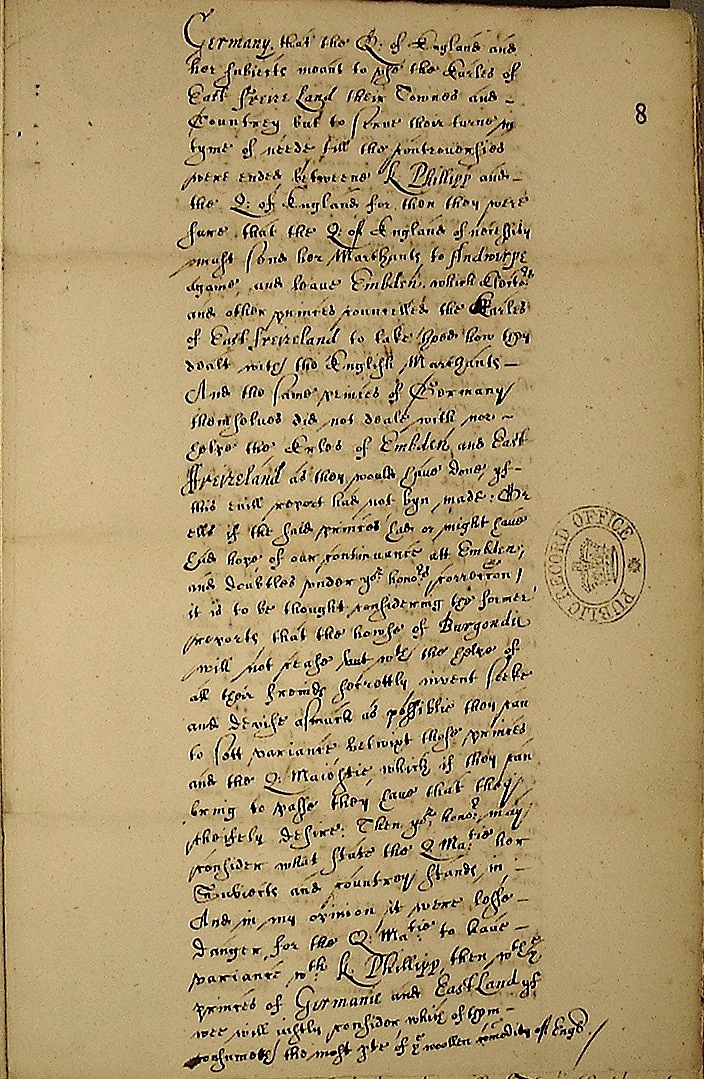 Germany, that the Q: of England and
her subiects meant to vse the Earles of
East Freize Land their Townes and -
Countrey but to serue their turne in
tyme of neede till the controuersies
were ended betweene K Phillipp and -
the Q: of England for then they were
sure that the Q: of England of necessity
must send her Marchants to Andwerpe
againe, and leaue Embden, which
and other princes councelled the Earles
of East Freizeland to take heed how they
dealt with the English Marchants -
And the same princes of Germany
themselues did not deale with nor -
helpe the Erles of Embden and East
Freizeland as they would haue done, yf -
this euill report had not byn made: Or
ells if the said princes had or might haue
had hope of our continuance att Embden,
and doubtles vnder yor honors correction /
it is to be thought considering the former
reports that the howse of Burgondie
will not cease but wth the helpe of
all their freinds secrettly invent seeke
and devise asmuch as possible they can
to sett variance betwixt those princes
and the Q: Maiestie which if they can
bring to passe they haue that they
cheifely desire: Then yor honor may
consider what state the Q Matie her
Subiects and countrey stands in -
And in my opinion it were lesse -
danger for the Q: Matie to haue -
variance wth K. Phillipp, then wth ye
princes of Germanie and East Land yf
wee will iustly consider which of them -
consumeth the most pte of ye woollen comodity of Engd /
8
PUBLIC RECORD OFFICE